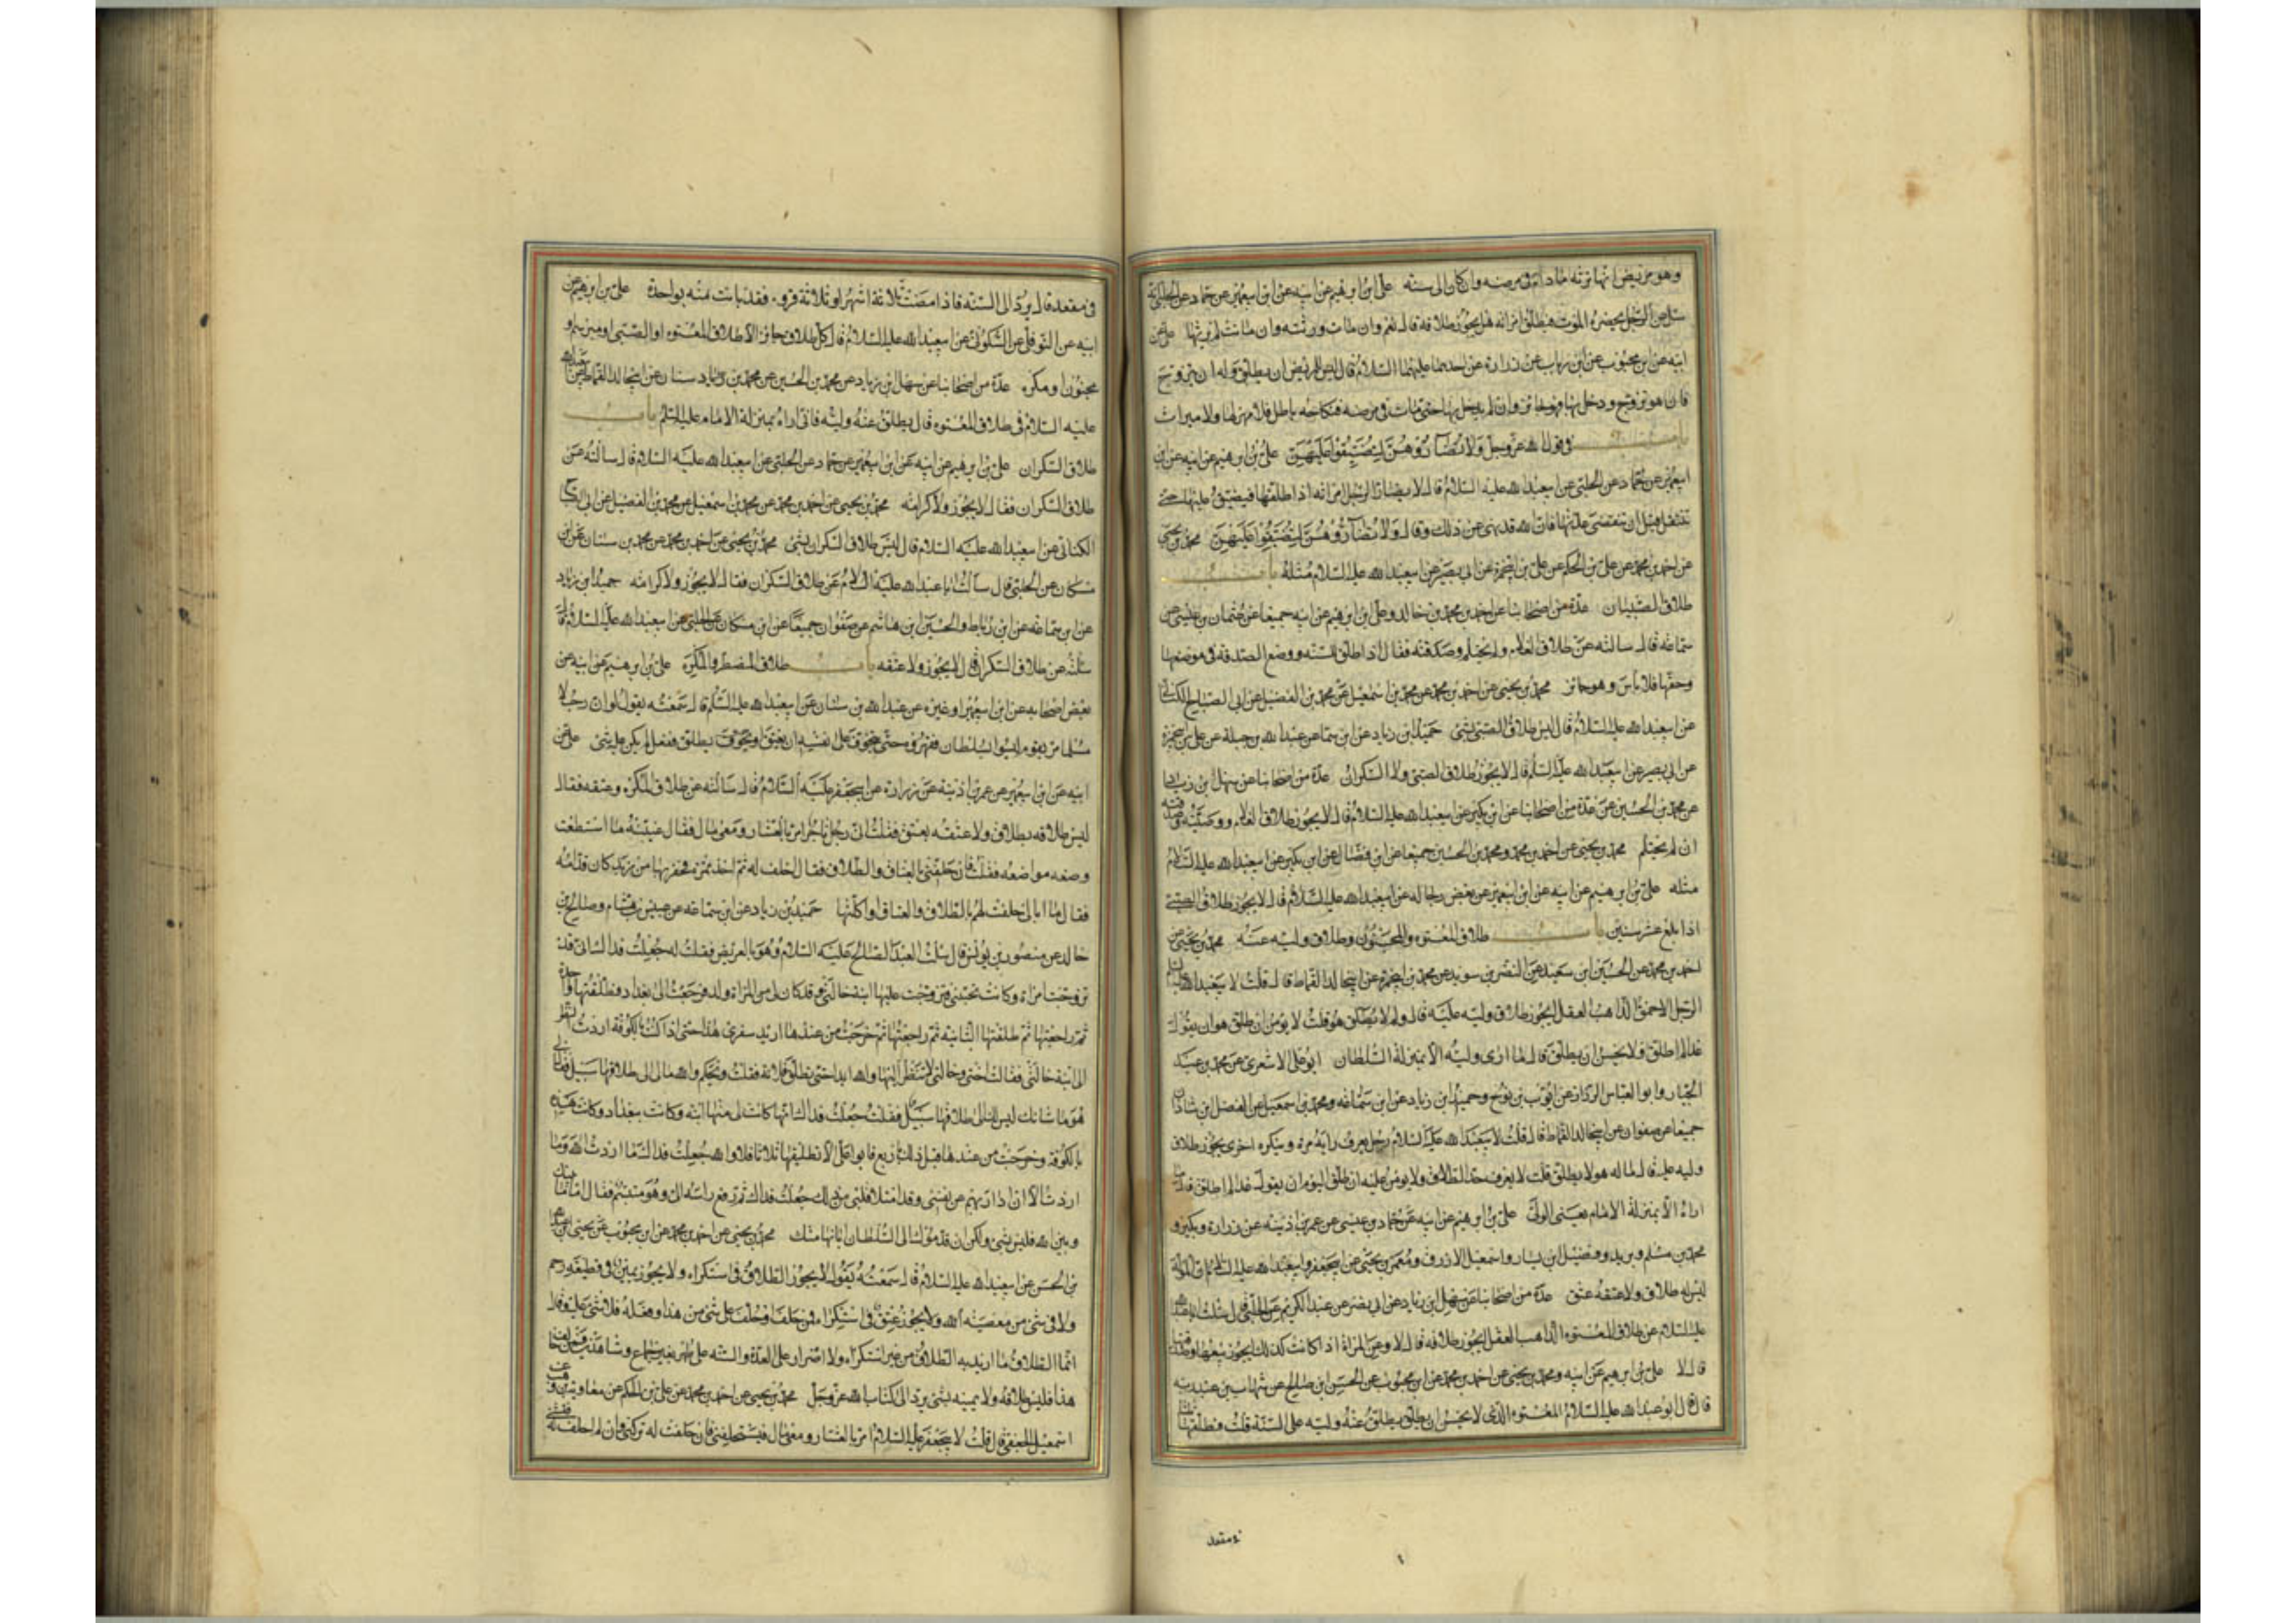 وهو مريض انها ترثه مادام فى مرضه وان كان الى سنة على بن ابرهيم عن ابيه عن ابن ابيعمير عن حماد عن الحلبى انه
سئل عن الرجل يحضره الموت فيطلق امراته هل يجوز طلاقه قال نعم وان مات ورثته وان ماتت لم يرثها على عن
ابيه عن ابن محبوب عن ابن رباب عن زرارة عن احدهما عليهما السلام قال ليس للمريض ان يطلق وله ان يتزوج
فان هو تزوج ودخل بها فهو جائز وان لم يدخل بها حتى مات فى مرضه فنكاحه باطل فلا مهر لها ولا ميراث
باب فى قول الله عز وجل ولا تضاروهن لتضيقوا عليهن على بن ابرهيم عن ابيه عن ابن
ابيعمير عن حماد عن الحلبى عن ابيعبد الله عليه السلام قال لا يضار الرجل امراته اذا طلقها فيضيق عليها حتى
تنتقل قبل ان تنقضى عدتها فان الله قد نهى عن ذلك وقال ولا تضاروهن لتضيقوا عليهن محمد بن يحيى
عن احمد بن محمد عن على بن الحكم عن على بن ابيحمزة عن ابى بصير عن ابيعبد الله عليه السلام مثله باب
طلاق الصبيان عدة من اصحابنا عن احمد بن محمد بن خالد وعلى ابن ابرهيم عن ابيه جميعا عن عثمان بن عيسى عن
سماعه قال سالته عن طلاق الغلام ولم يحتلم وصدقته فقال اذا طلق للسنه ووضع الصدقة فى موضعها
وحقها فلا باس وهو جائز محمد بن يحيى عن احمد بن محمد عن محمد بن اسمعيل عن محمد بن الفضيل عن ابى الصباح الكنانى
عن ابيعبد الله عليه السلام قال ليس طلاق الصبى بشى حميد ابن زياد عن ابن سماعه عن عبد الله بن جبلة عن على بن ابيحمزة
عن ابى بصير عن ابيعبد الله عليه السلم قال لا يجوز طلاق الصبى ولا السكران عدة من اصحابنا عن سهل بن زياد
عن محمد بن الحسين عن عدة من اصحابنا عن ابن بكير عن ابيعبد الله عليه السلام قال لا يجوز طلاق الغلام ووصيته وصدقته
ان لم يحتلم محمد بن يحيى عن احمد بن محمد ومحمد بن الحسين جميعا عن ابن فضال عن ابن بكير عن ابيعبد الله عليه السلام
مثله على بن ابرهيم عن ابيه عن ابن ابيعمير عن بعض رجاله عن ابيعبد الله عليه السلام قال لا يجوز طلاق الصبى
اذا بلغ عشر سنين باب طلاق المعتوه والمجنون وطلاق وليه عنه محمد بن يحيى عن
احمد بن محمد عن الحسين ابن سعيد عن النضر بن سويد عن محمد بن ابيحمزه عن ابيخالد القماط قال قلت لابيعبد الله عليه السلم
الرجل الاحمق الذاهب العقل ايجوز طلاق وليه عليه قال ولم لا يطلق هو قلت لا يؤمن ان طلق هو ان يقول
غدا لم اطلق ولا يحسن ان يطلق قال ما ارى وليه الا بمنزلة السلطان ابو على الاشعرى عن محمد بن عبد
الجبار وابو العباس الرزاز عن ايوب بن نوح وحميد ابن زياد عن ابن سماعه ومحمد بن اسمعيل عن الفضل ابن شاذان
جميعا عن صفوان عن ابيخالد القماط قال قلت لابيعبد الله عليه السلام رجل يعرف رايه مرة وينكره اخرى يجوز طلاق
وليه عليه قال ما له هو لا يطلق قلت لا يعرف حد الطلاق ولا يؤمن عليه ان طلق اليوم ان يقول غدا لم اطلق قال ما
اراه الا بمنزلة الامام يعنى الولى على بن ابرهيم عن ابيه عن حماد بن عيسى عن عمر بن اذينه عن زرارة وبكير و
محمد بن مسلم وبريد وفضيل ابن يسار واسمعيل الازرق ومعمر بن يحيى عن ابيجعفر وابيعبد الله عليه السلام ان الموله
ليس له طلاق ولا عتقه عتق عدة من اصحابنا عن سهل ابن زياد عن ابى نصر عن عبد الكريم عن الحلبى قال سئلت اباعبد الله
عليه السلام عن طلاق المعتوه الذاهب العقل ايجوز طلاقه قال لا وعن المراة اذا كانت كذلك ايجوز بيعها وصدقتها
قال لا على بن ابرهيم عن ابيه ومحمد بن يحيى عن احمد بن محمد عن ابن محبوب عن الحسن ابن صالح عن شهاب بن عبد ربه
قال قال ابو عبد الله عليه السلام المعتوه الذى لا يحسن ان يطلق يطلق عنه وليه على السنة قلت فطلقها ثلثا
فى مقعد
فى مقعد قال يرد الى السنه فاذا مضت ثلاثة اشهر او ثلاثة قروء فقد بانت منه بواحدة على بن ابرهيم عن
ابيه عن النوفلى عن السكونى عن ابيعبد الله عليه السلام قال كل طلاق جائز الا طلاق المعتوه او الصبى او مبرسم او
مجنون او مكره عدة من اصحابنا عن سهل ابن زياد عن محمد بن الحسين عن محمد بن سنان عن ابيخالد القماط عن ابيعبد الله
عليه السلام فى طلاق المعتوه قال يطلق عنه وليه فانى اراه بمنزلة الامام عليه السلم باب
طلاق السكران على بن ابرهيم عن ابيه عن ابن ابيعمير عن حماد عن الحلبى عن ابيعبد الله عليه السلام قال سالته عن
طلاق السكران فقال لا يجوز ولا كرامه محمد بن يحيى عن احمد بن محمد عن محمد بن اسمعيل عن محمد بن الفضيل عن ابى الصباح
الكنانى عن ابيعبد الله عليه السلام قال ليس طلاق السكران بشى محمد بن يحيى عن احمد بن محمد عن محمد بن سنان عن ابن
مسكان عن الحلبى قال سالت اباعبد الله عليه السلام عن طلاق السكران فقال لا يجوز ولا كرامه حميد ابن زياد
عن ابن سماعه عن ابن رباط والحسين ابن هاشم عن صفوان جميعا عن ابن مسكان عن الحلبى عن ابيعبد الله عليه السلام قال
سالته عن طلاق السكران قال لا يجوز ولا عتقه باب طلاق المضطر والمكره على بن ابرهيم عن ابيه عن
بعض اصحابه عن ابن ابيعمير او غيره عن عبد الله بن سنان عن ابيعبد الله عليه السلم قال سمعته يقول لو ان رجلا
مسلما مر بقوم ليسوا بسلطان فقهروه حتى يتخوف على نفسه ان يعتق او يتخوف يطلق ففعل لم يكن عليه شى على عن
ابيه عن ابن ابيعمير عن عمر بن اذينه عن زرارة عن ابيجعفر عليه السلام قال سالته عن طلاق المكره وعتقه فقال
ليس طلاقه بطلاق ولا عتقه بعتق فقلت انى رجل تاجر امر بالعشار ومعى مال فقال غيبه ما استطعت
وضعه مواضعه فقلت فان حلفنى بالعتاق والطلاق فقال احلف له ثم اخذ تمرة فحفر بها من زبد كان قدامه
فقال ما ابالى حلفت لهم بالطلاق والعتاق او اكلتها حميد بن زياد عن ابن سماعه عن عبيس بن هشام وصالح بن
خالد عن منصور بن يونس قال سئلت العبد الصالح عليه السلام وهو بالعريض فقلت له جعلت فداك انى قد
تزوجت امراة وكانت تحبنى فتزوجت عليها ابنة خالى وقد كان لى من المراة ولد فرجعت الى بغداد فطلقتها واحدة
ثم راجعتها ثم طلقتها الثانيه ثم راجعتها ثم خرجت من عندها اريد سفرى هذا حتى اذا كنت بالكوفة اردت النظر
الى ابنة خالى فقالت اختى وخالتى لا تنظر اليها والله ابدا حتى تطلق فلانة فقلت ويحكم والله مالى الى طلاقها سبيل فقال لى
هو ما شانك ليس لك الى طلاقها سبيل فقلت جعلت فداك انها كانت لى منها ابنه وكانت ببغداد وكانت هذه
بالكوفة وخرجت من عندها قبل ذلك باربع فابوا على الا تطليقها ثلاثا فلا والله جعلت فداك ما اردت الله وما
اردت الا ان اداريهم عن نفسى وقد امتلا قلبى من ذلك جعلت فداك ثم رفع راسه الى وهو متبسم فقال اما ما بينك
وبين الله فليس بشى ولكن ان قدموك الى السلطان ابانها منك محمد بن يحيى عن احمد بن محمد عن ابن محبوب عن يحيى ابن عبد الله
بن الحسن عن ابيعبد الله عليه السلام قال سمعته يقول لا يجوز الطلاق فى استكراه ولا يجوز يمين فى قطيعة رحم
ولا فى شى من معصية الله ولا يجوز عتق فى استكراه فمن حلف او حلف على شى من هذا وفعله فلا شى عليه وقال
انما الطلاق ما اريد به الطلاق من غير استكراه ولا اضرار على العدة والسنه على طهر بغير جماع وشاهدين فمن خالف
هذا فليس طلاقه ولا يمينه بشى يرد الى كتاب الله عز وجل محمد بن يحيى عن احمد بن محمد عن على بن الحكم عن معاويه بن وهب عن
اسمعيل الجعفى قال قلت لابيجعفر عليه السلام امر بالعشار ومعى مال فيستحلفنى فان حلفت له تركنى وان لم احلف له فتشنى